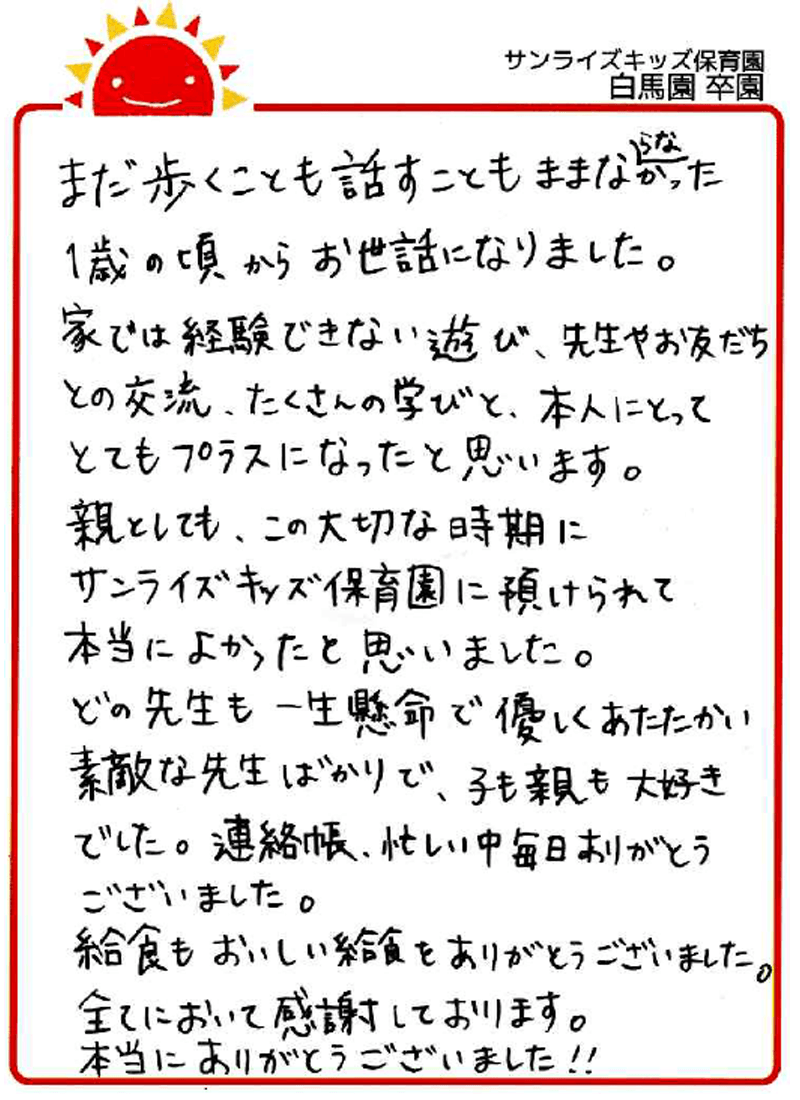 サンライズキッズ保育園
白馬園 卒園
まだ歩くことも話すこともままならなかった
1歳の頃からお世話になりました。
家では経験できない遊び、先生やお友だち
との交流、たくさんの学びと、本人にとって
とてもプラスになったと思います。
親としても、この大切な時期に
サンライズキッズ保育園に預けられて
本当によかったと思いました。
どの先生も一生懸命で優しくあたたかい
素敵な先生ばかりで、子も親も大好き
でした。連絡帳、忙しい中毎日ありがとう
ございました。
給食もおいしい給食をありがとうございました。
全てにおいて感謝しております。
本当にありがとうございました!!